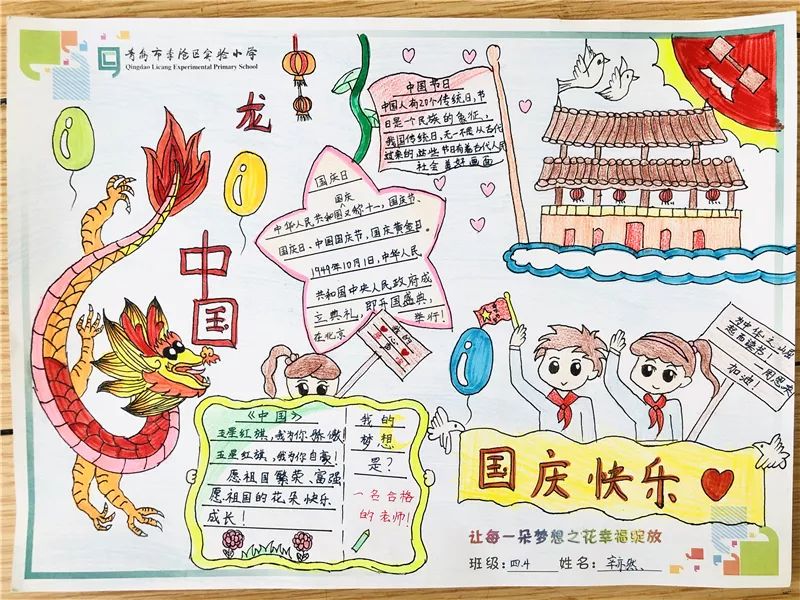 青岛市李沧区实验小学
Qingdao Licang Experimental Primary School
龙
中国
中国节日
中国人有20个传统日,节
日是个民族的象征,
我国传统日,无一不是从古代
过来的,这些节日有着古代人民
社会美好画面
国庆日
国庆
中华人民共和国又称十一,国庆节、
国庆日、中国国庆节,国庆黄金日。
1949年10月1日,中华人民
共和国中央人民政府成
立典礼,即开国盛典,
在北京
举行!
我的
《中国》
五星红旗,我为你骄傲!
五星红旗,我为你自豪!
愿祖国繁荣、富强
愿祖国的花朵快乐
成长!
我的
梦想
是?
一名合格
的老师!
为中华之崛起
而读书。周恩来
加油!
国庆快乐
让每一朵梦想之花幸福绽放
班级:四.4
姓名: